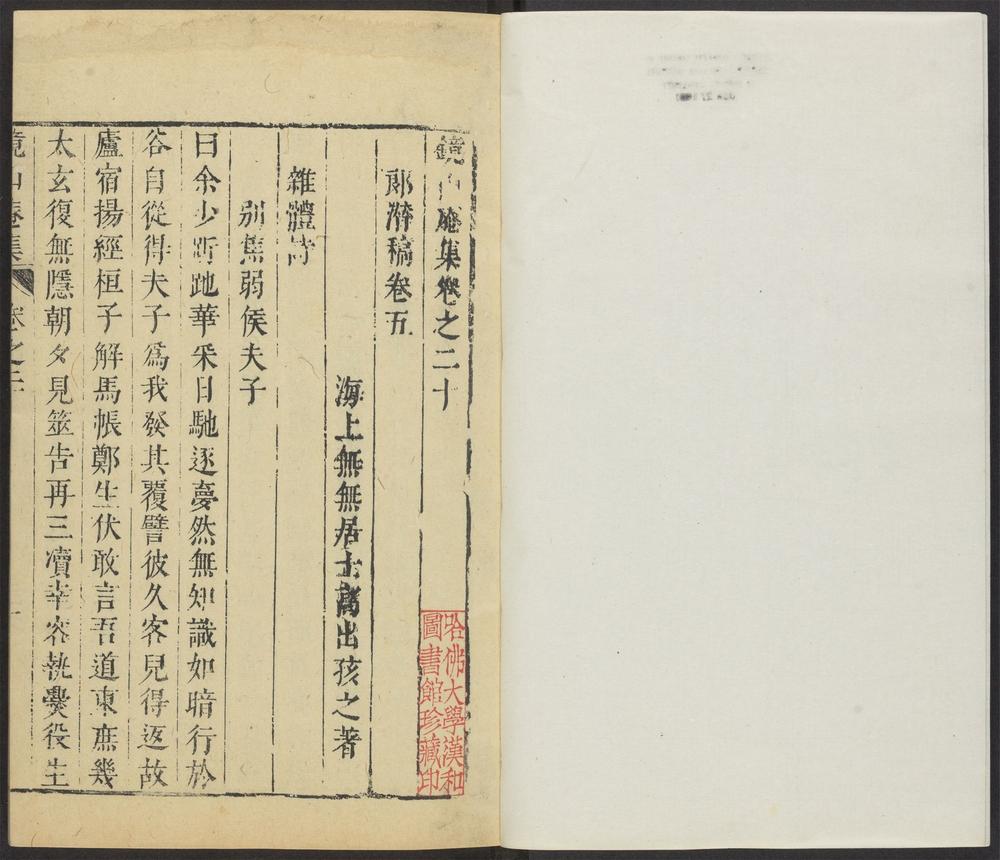 鏡山庵集卷之二十
郧漪稿卷五
海上無無居士高出孩之著
雜體詩
別焦弱侯夫子
曰余少跅跑華采日馳逐夢然無知識如暗行於
谷自從得夫子為我發其覆譬彼久客兒得返故
廬宿揚經桓子解馬帳鄭生伏敢言吾道東庶幾
太玄復無隱朝夕見筮告再三瀆幸容執爨役生
鏡山庵集
卷之二
哈佛大學漢和
圖書館珍藏印